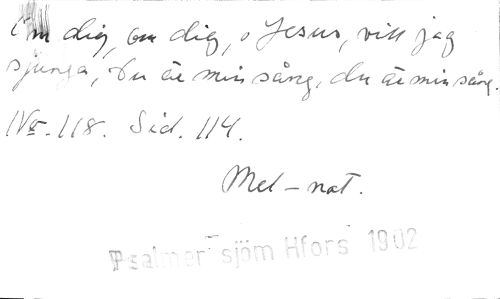 Om dig, om dig, o Jesus, vill jag
sjunga, du är min sång, du är min sång.
No. 118. Sid. 114.
Mel-not.
Psalmer sjöm Hfors 1902